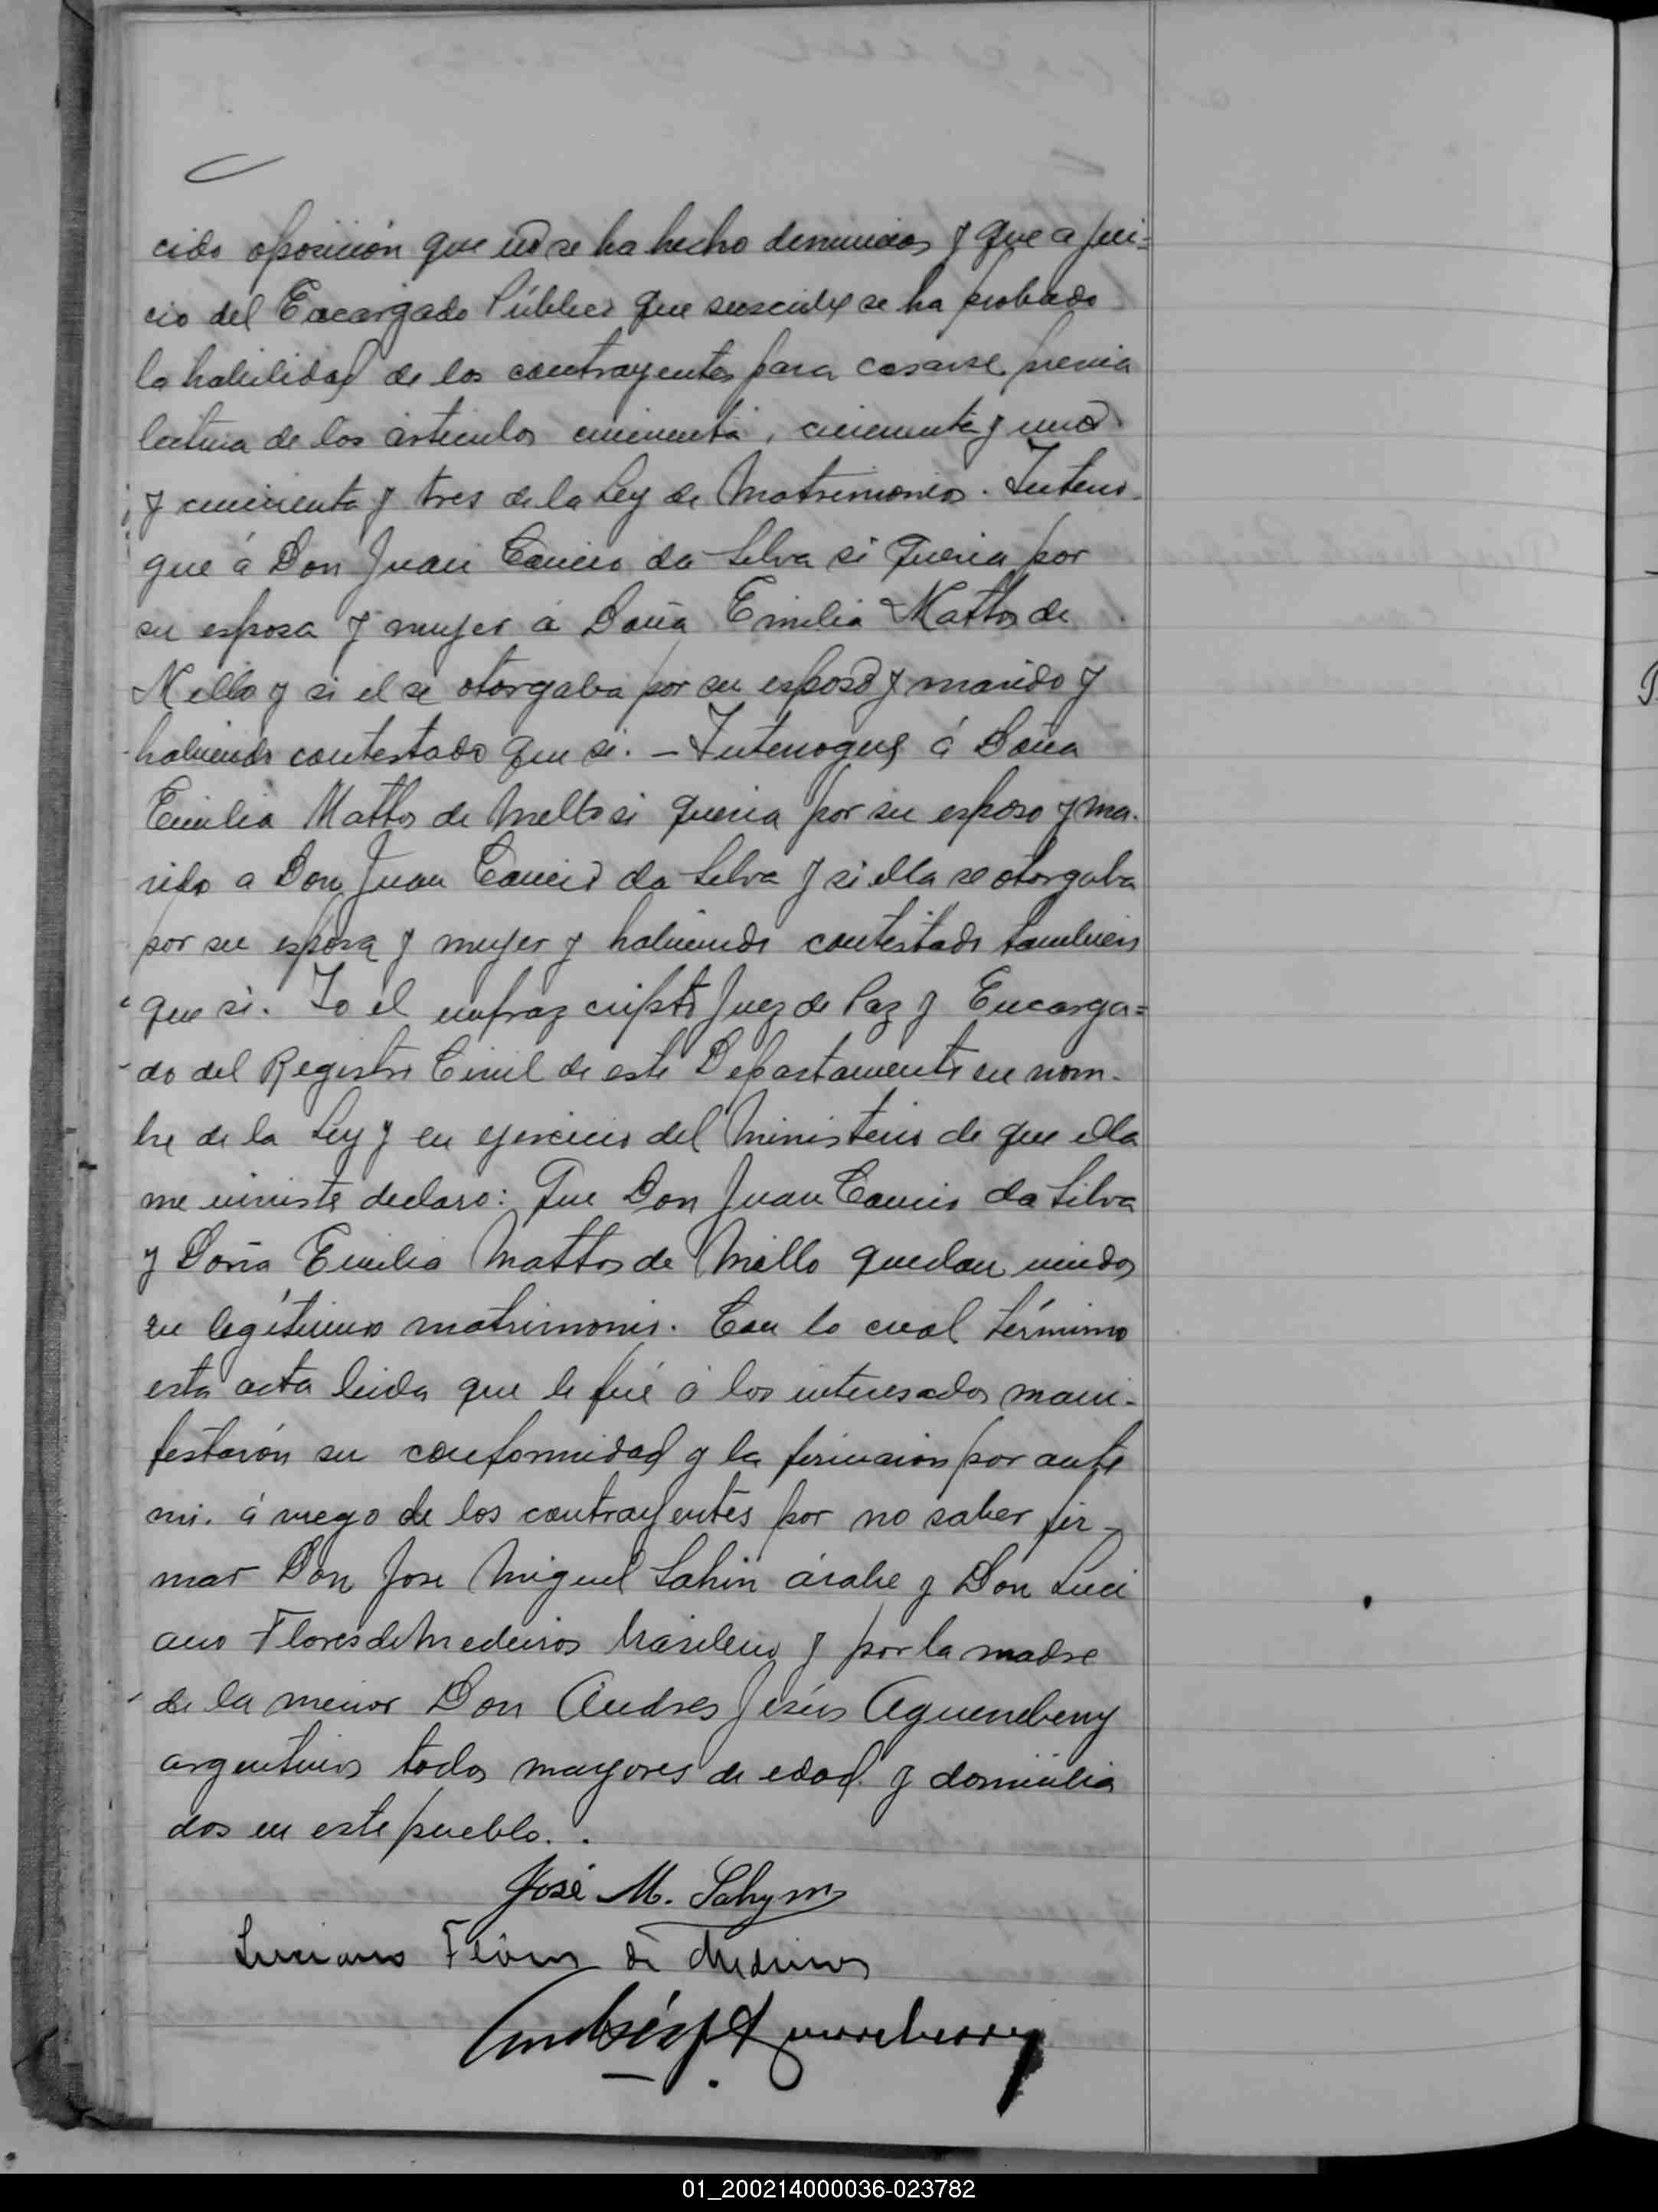 cido oposición que no se ha hecho denuncias y que a jui=
cio del Encargado Público que suscribe se ha probado
la habilidad de los contrayentes para casarse, previa
lectura de los articulos cincuenta, cincuenta y uno
y cincuenta y tres de la Ley de Matrimonios. Interro-
gué á Don Juan Cancio da Silva si queria por
su esposa y mujer á Doña Emilia Mattos de
Mello y si el se otorgaba por su esposo y marido y
habiendo contestado que si. - Interrogué á Doña
Emilia Mattos de Mello si queria por su esposo y ma-
rido a Don Juan Cancio da Silva y si ella se otorgaba
por su esposa y mujer y habiendo contestado tambien
que si. Yo el infraz cripto Juez de Paz y Encarga=
do del Registro Civil de este Departamento en nom-
bre de la Ley y en ejercicio del Ministerio de que ella
me inviste declaro: Que Don Juan Cancio da Silva
y Doña Emilia Mattos de Mello quedan unidos
en legítimo matrimonio. Con lo cual término
esta acta leida que le fué á los interesados mani-
festarón su conformidad y la firmaron por ante
mi. á ruego de los contrayentes por no saber fir-
mar Don Jose Miguel Sahin árabe y Don Luci
ano Flores de Medeiros brasilero y por la madre
de la menor Don Andres Jesús Aguerreberry
argentino todos mayores de edad y domicilia
dos en este pueblo. .
José M. Sahym
Luciano Flôres de Medeiros
Andrés J. Aguerreberry
01_200214000036-023782